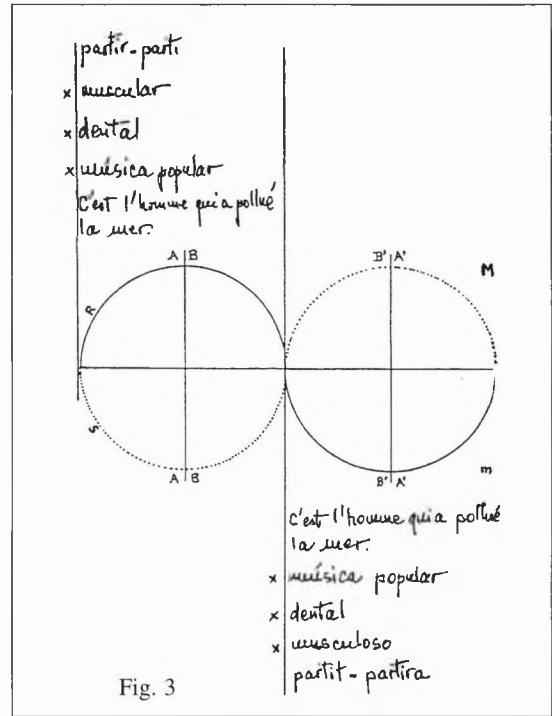 partir-parti
x muscular
x dental
x música popular
C'est l'homme qui a pollué
la mer.
A B
B' A'
M
R
S
m
A B
B' A'
c'est l'homme qui a pollué
la mer.
x música popular
x dental
x musculoso
partit-partira
Fig. 3